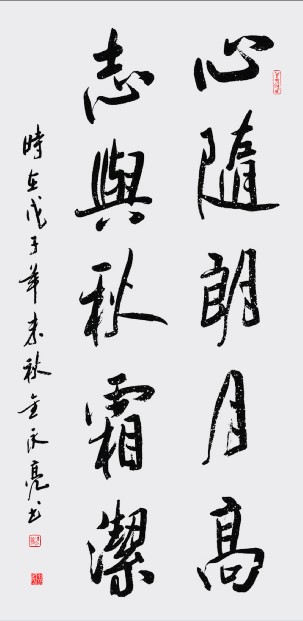 心隨朗月高
志與秋霜潔
時在戊子年末秋金永亮書